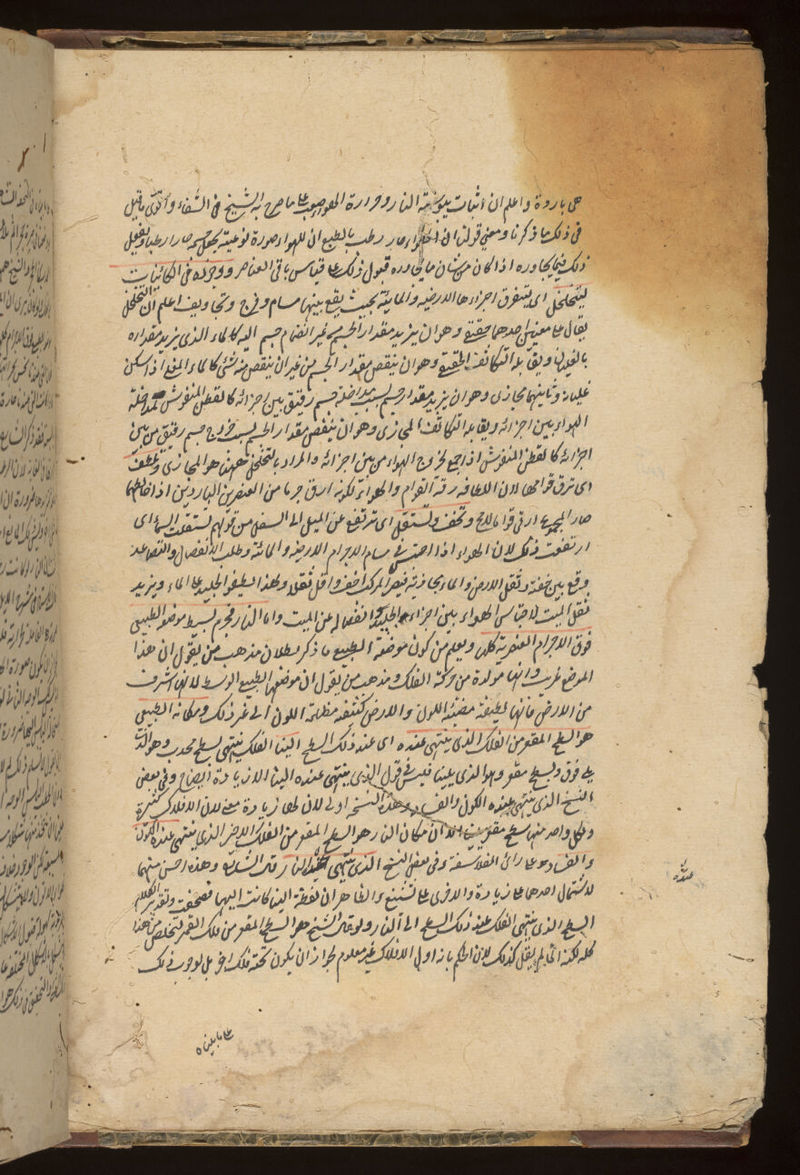 على باردة واعلم ان اثبات يبوسة النار وحرارة الهواء صعب على ما صرح به الشيخ في الشفاء واقوى ما قيل
في ذلك ما ذكرنا ومعنى قولنا ان الهواء حار رطب بالطبع ان للهواء صورة نوعية تجعل جسمه حارا رطبا يفعل
ذلك فيما يجاوره اذا كان من شان ما يجاوره قبول ذلك على قياس باقي العناصر ووجوده في الكائنات
ليتخلخل اى لتتفرق اجزاءها الارضية والمائية بحيث يقع بينها مسام وفرج وتجاويف اعلم ان التخلخل
يقال على معنيين احدهما حقيقة وهو ان يزيد مقدار الجسم من غير انضمام جسم اليه كالماء الذى يزيد مقداره
بالغليان ويقابله التكاثف الحقيقى وهو ان ينقص مقدار الجسم من غير ان ينقص منه شئ كالماء المغلى اذا سكن
غليانه وثانيهما مجازى وهو ان يزيد مقدار جسم بسبب مداخلة جسم رقيق بين اجزائه كالقطن المنفوش لمداخلة
الهواء بين اجزائه ويقابله التكاثف المجازى وهو ان ينقص مقدار الجسم بسبب خروج جسم رقيق من بين
اجزائه كالقطن المنفوش اذا جمع لخروج الهواء من بين اجزائه والمراد بالتخلخل ههنا هو المجازى وتلطف
اى ترق قوامها لان اللطافه رقة القوام والهواء لكونه ارق جرما من العنصرين الباردين اذا خالطهما
صار المجموع ارق قواما وتخف وتستقل اى ترتفع عن الميل الى السفل من قولهم استقلت السماء اى
ارتفعت وذلك لان الهواء اذا احتبس في مسام الاجرام الارضية والمائية وطلب الانفصال والتصاعد
وقع بين خفته وثقل الارض والماء مجاذبة فيصير المركب اخف واقل ثقلا ولهذا يطفو الجليد على الماء ويزيد
ثقل الميت لاحتباس الهواء بين اجزاء الجليد وانفصاله عن الميت واما النار فجرم بسيط موضعه الطبيعى
فوق الاجرام العنصرية كلها ويعلم من كون موضعه الطبيعى ما ذكر بطلان مذهب من يقول ان هذا
الموضع غريب وانها مولدة من حركة الفلك ومذهب من يقول ان موضعها الطبيعى الوسط لانها اشرف
من الارض فانها لطيفة مضيئة اللون والارض كثيفة مظلمة اللون الى غير ذلك ومكانه الطبيعى
هو السطح المقعر من الفلك الذى ينتهى عنده اى عند ذلك السطح الينا الفلك ينتهى بسطح محدب وهو الذى
يلى فوق وبسطح مقعر وهو الذى يلينا فليس في قوله الذى ينتهى عنده الينا الا زيادة ايضاح وفي بعض
النسخ الذى ينتهى عنده الكون والفساد وهذه النسخة اولى لان لها زيادة معنى لان الافلاك كثيرة
ولكل واحد منها سطح مقعر فبين ان مكان النار هو السطح المقعر من الفلك الاخير الذى ينتهى عنده الكون
والفساد وعلى راى الفلاسفة وفي بعض النسخ الذى ينتهى وهذه احسن منهما
لاشتمال احدهما على زيادة والاخرى على تشنيع والظاهر ان لفظة الينا كانت اليها فصحفت وتقدير الكلام
السطح الذى ينتهى الفلك عند ذلك السطح الى النار ولو قال الشيخ هو السطح المقعر من فلك القمر لتخلص من هذا
كله لكنه انما لم يقل كذلك لان الحكم بانه اول الافلاك غير معلوم لجواز ان يكون تحته فلك اخر بل لوجوب ذلك
عنده
على ما بيناه